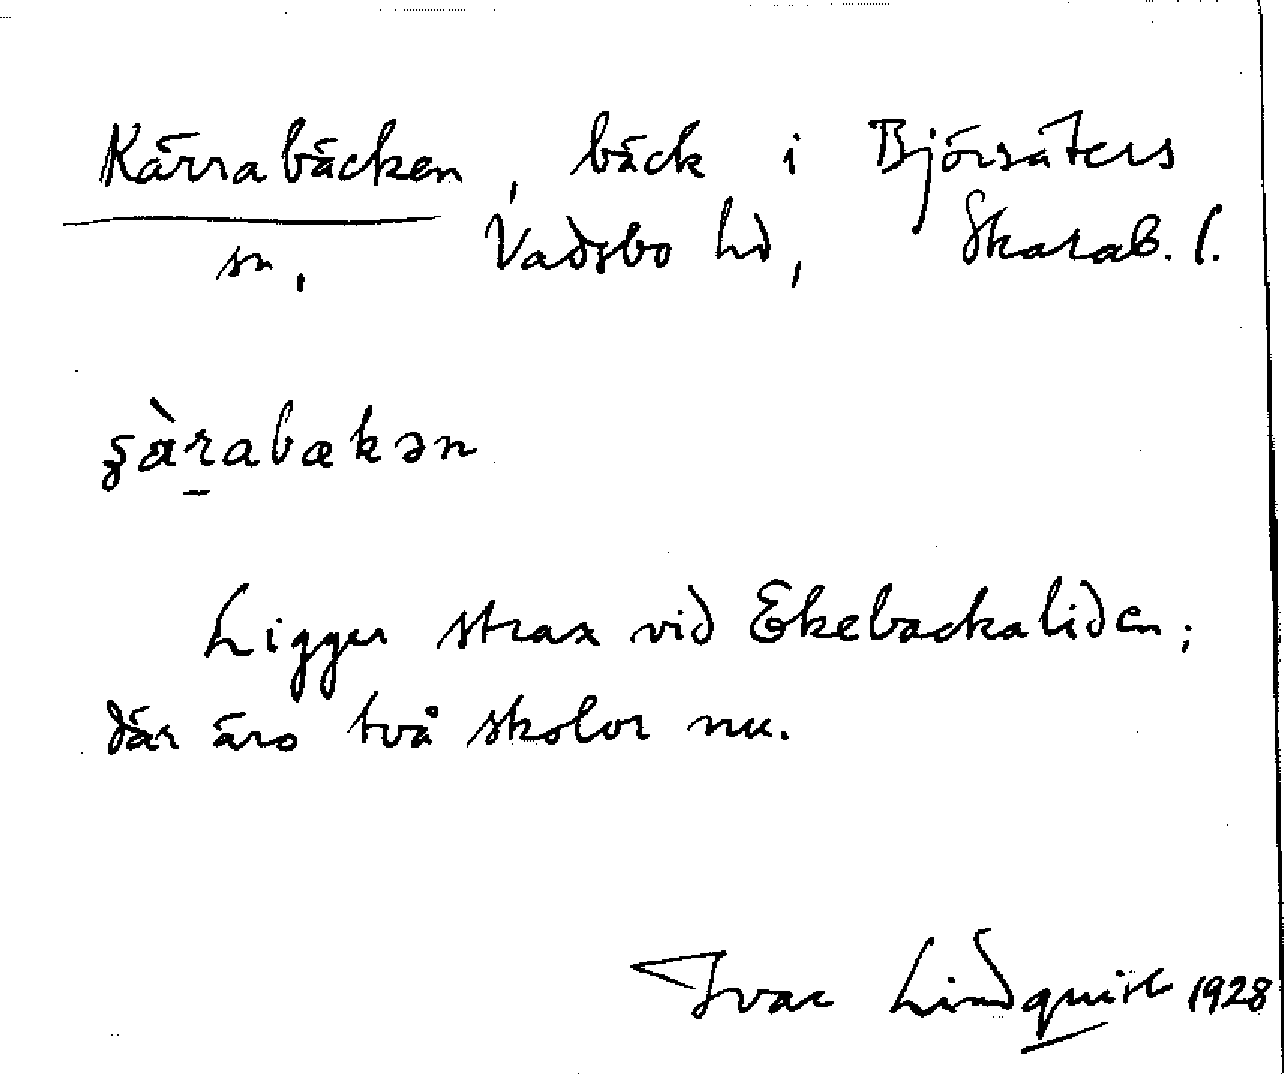 Kärrabäcken, bäck i Björsäters
sn, Vadsbo hd, Skarab. l.
ʂàr̠abækən
Ligger strax vid Ekebackaliden;
där äro två skolor nu.
Ivar Lindquist 1928